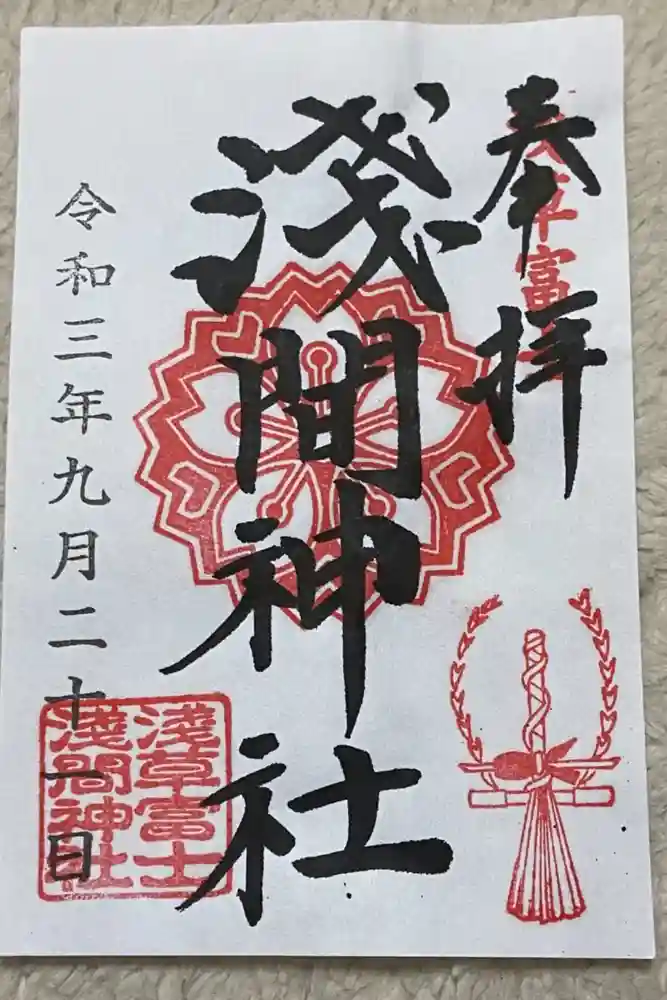 奉拝
浅草富士
淺間神社
令和三年九月二十一日
淺草富士
淺間神社